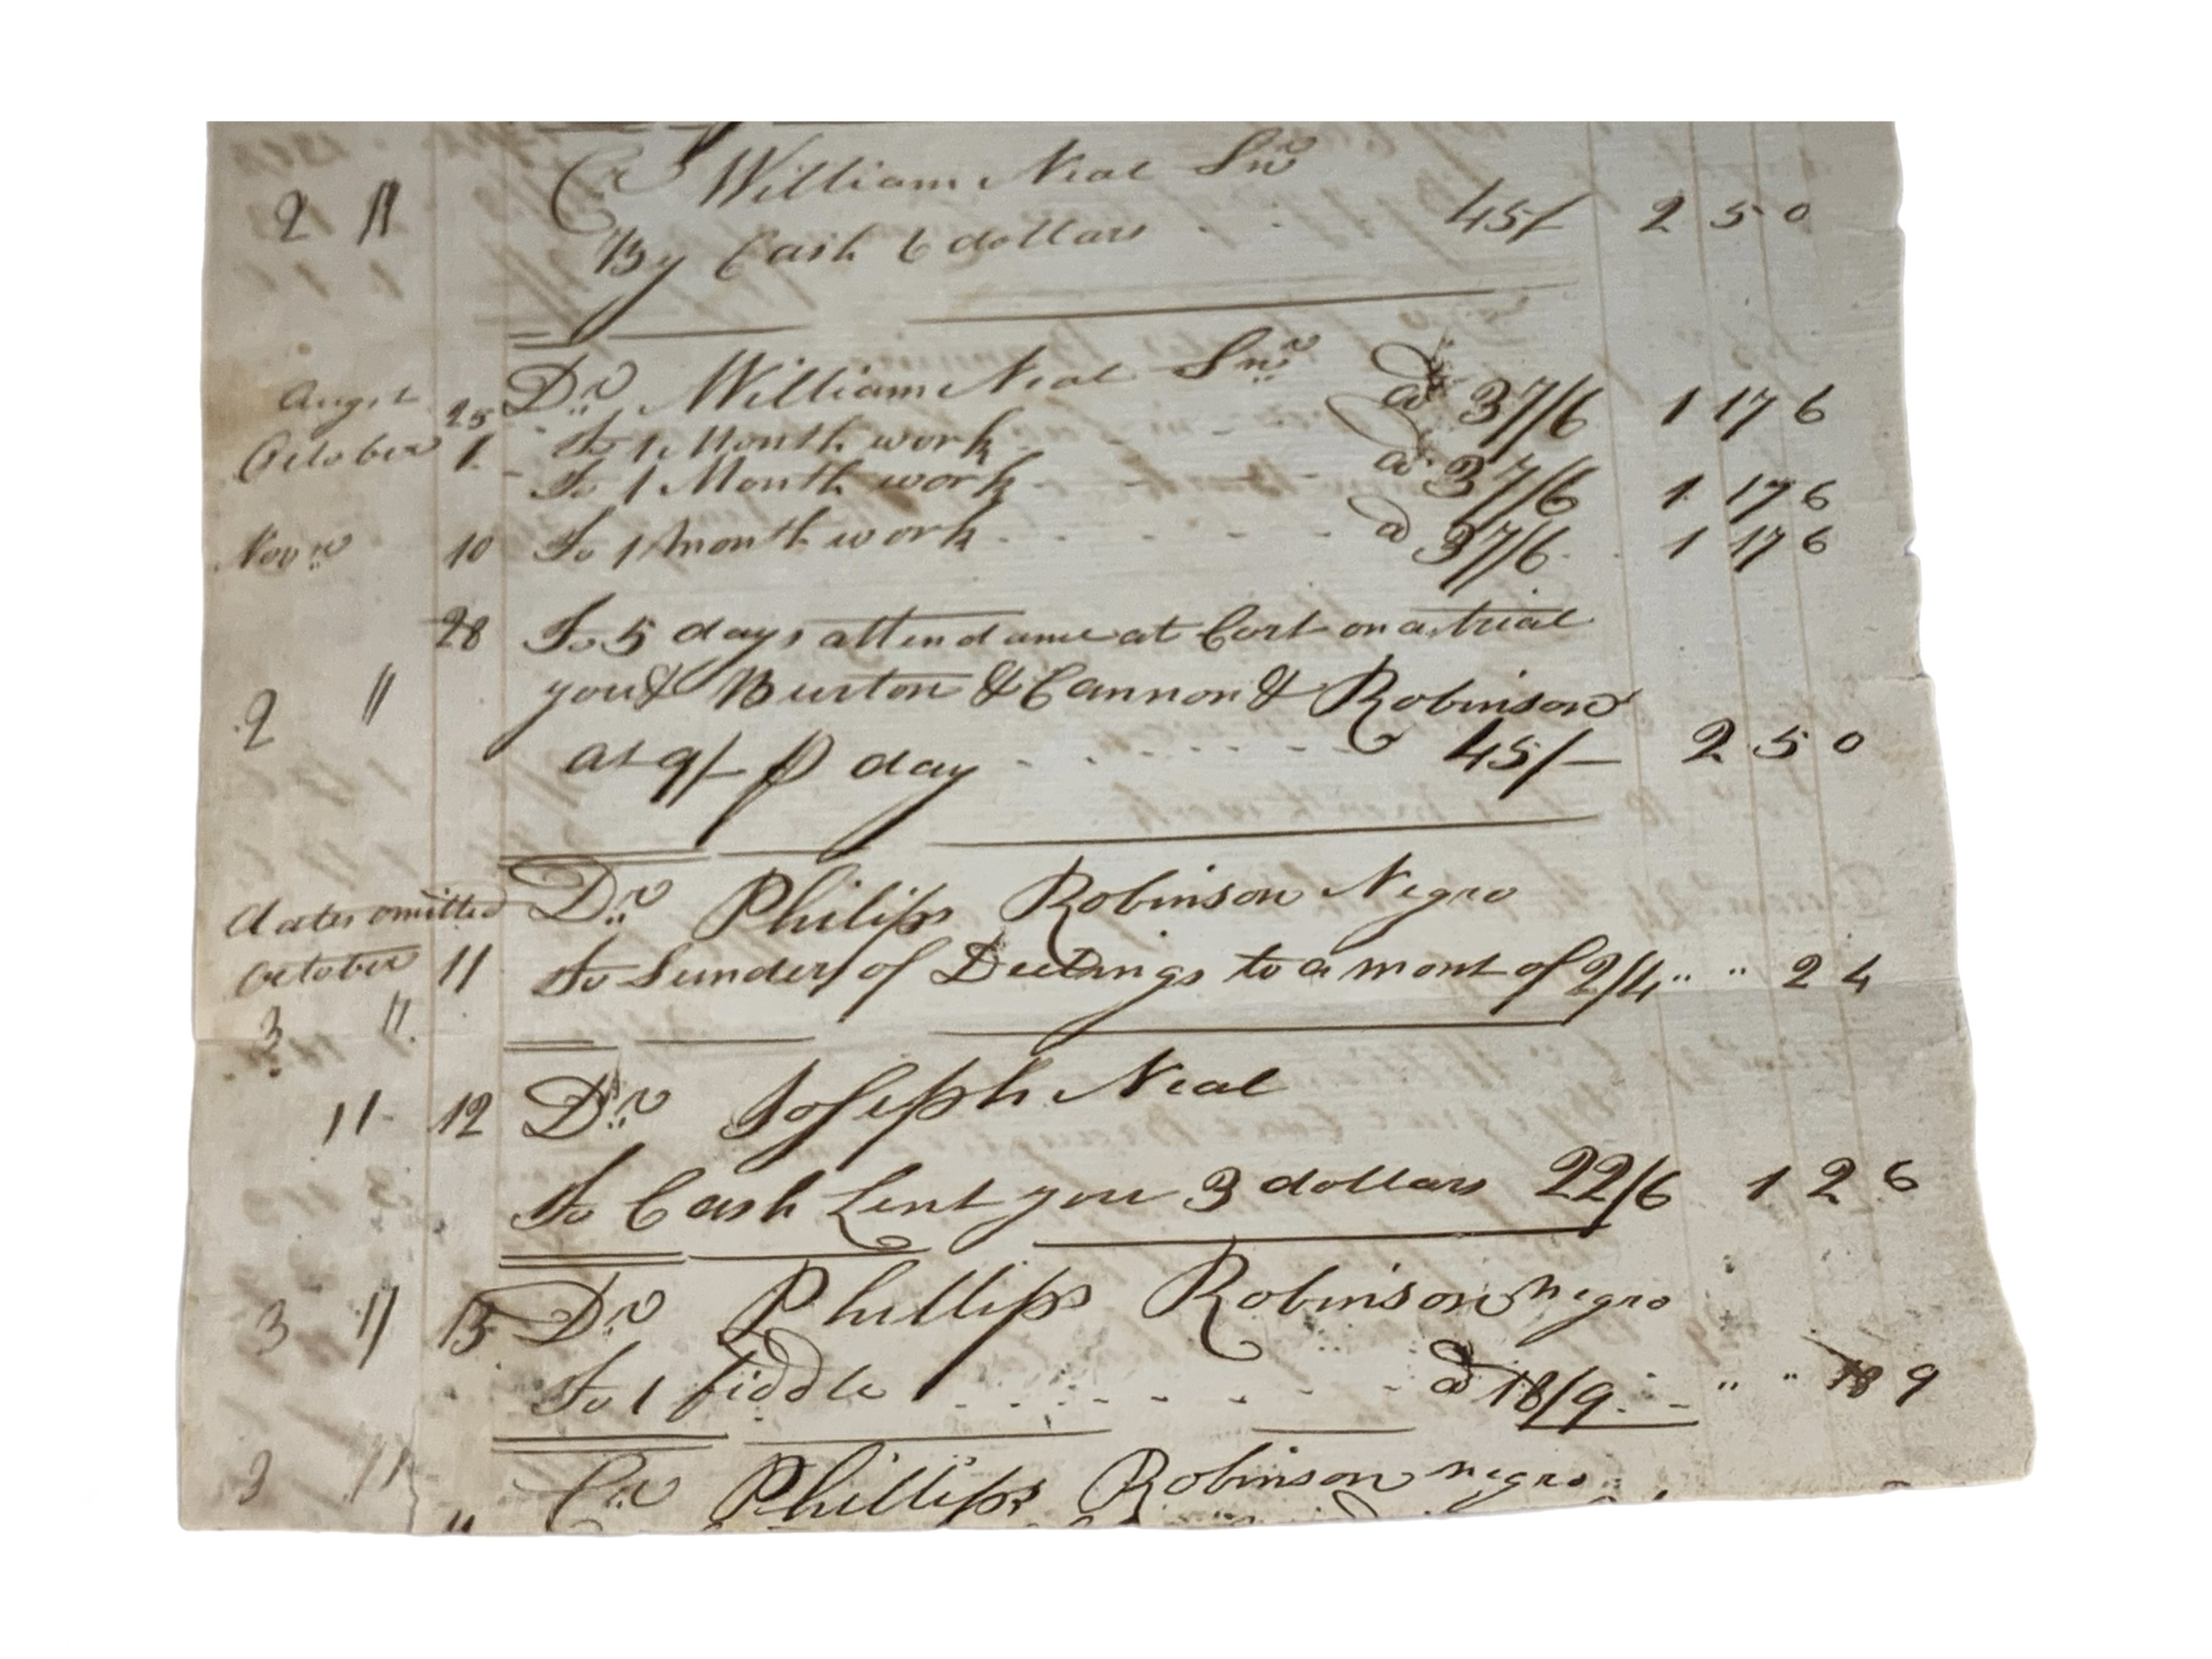 Cr William Neal Snr
2 " By Cash 6 dollars 45/ 2 5 0
Dr William Neal Snr
Augst 25 To 1 Month work a 37/6 1 17 6
October 1 To 1 Month work a 37/6 1 17 6
Novr 10 To 1 month work a 37/6 1 17 6
28 To 5 days attendance at Cort on a trial
2 " you & Burton & Cannon & Robinson
at 9/ p day 45/ 2 5 0
dates omitted Dr Philips Robinson Negro
October 11 To Sunders of Deelings to a mont of 2/4 " " 2 4
3 "
11 12 Dr Joseph Neal
To Cash Lent you 3 dollars 22/6 1 2 6
3 11 13 Dr Phillips Robinson negro
To 1 fiddle a 18/9 " " 18 9
3 11 Cr Phillips Robinson negro
"